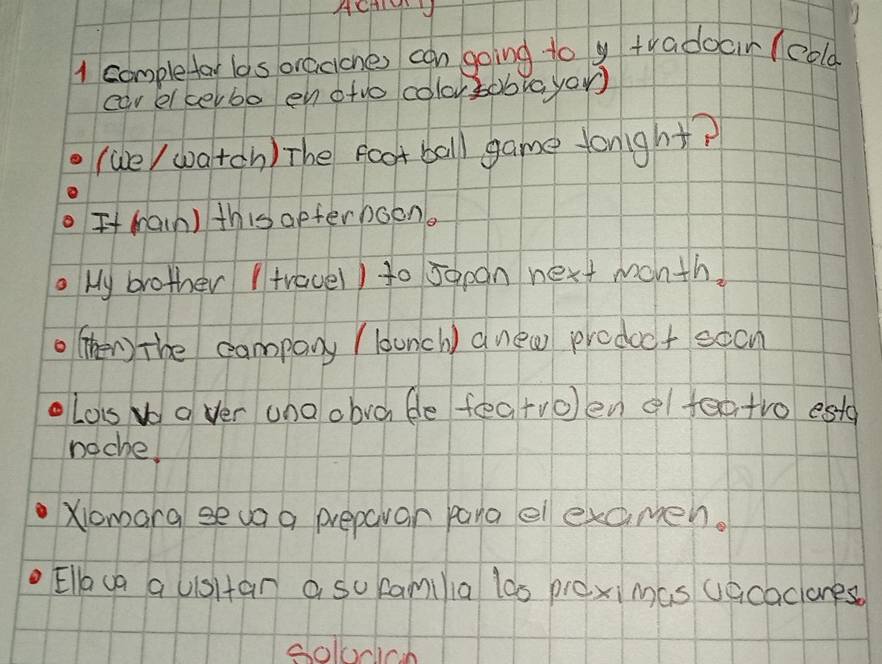 Activity
1 completar las oraciones con going to y tradocir (colo
car el verbo en otro color subrayar)
(we / watch) The foot ball game tonight?
It (rain) this afternoon.
My brother (travel) to Japan next month.
(Then) The company (launch) a new prodoct soon
Lois va a ver una obra (de teatro) en el teatro esta
noche.
Xiomara se va a preparar para el examen.
Ella va a visitar a su familia las proximas vacaciones.
solucion